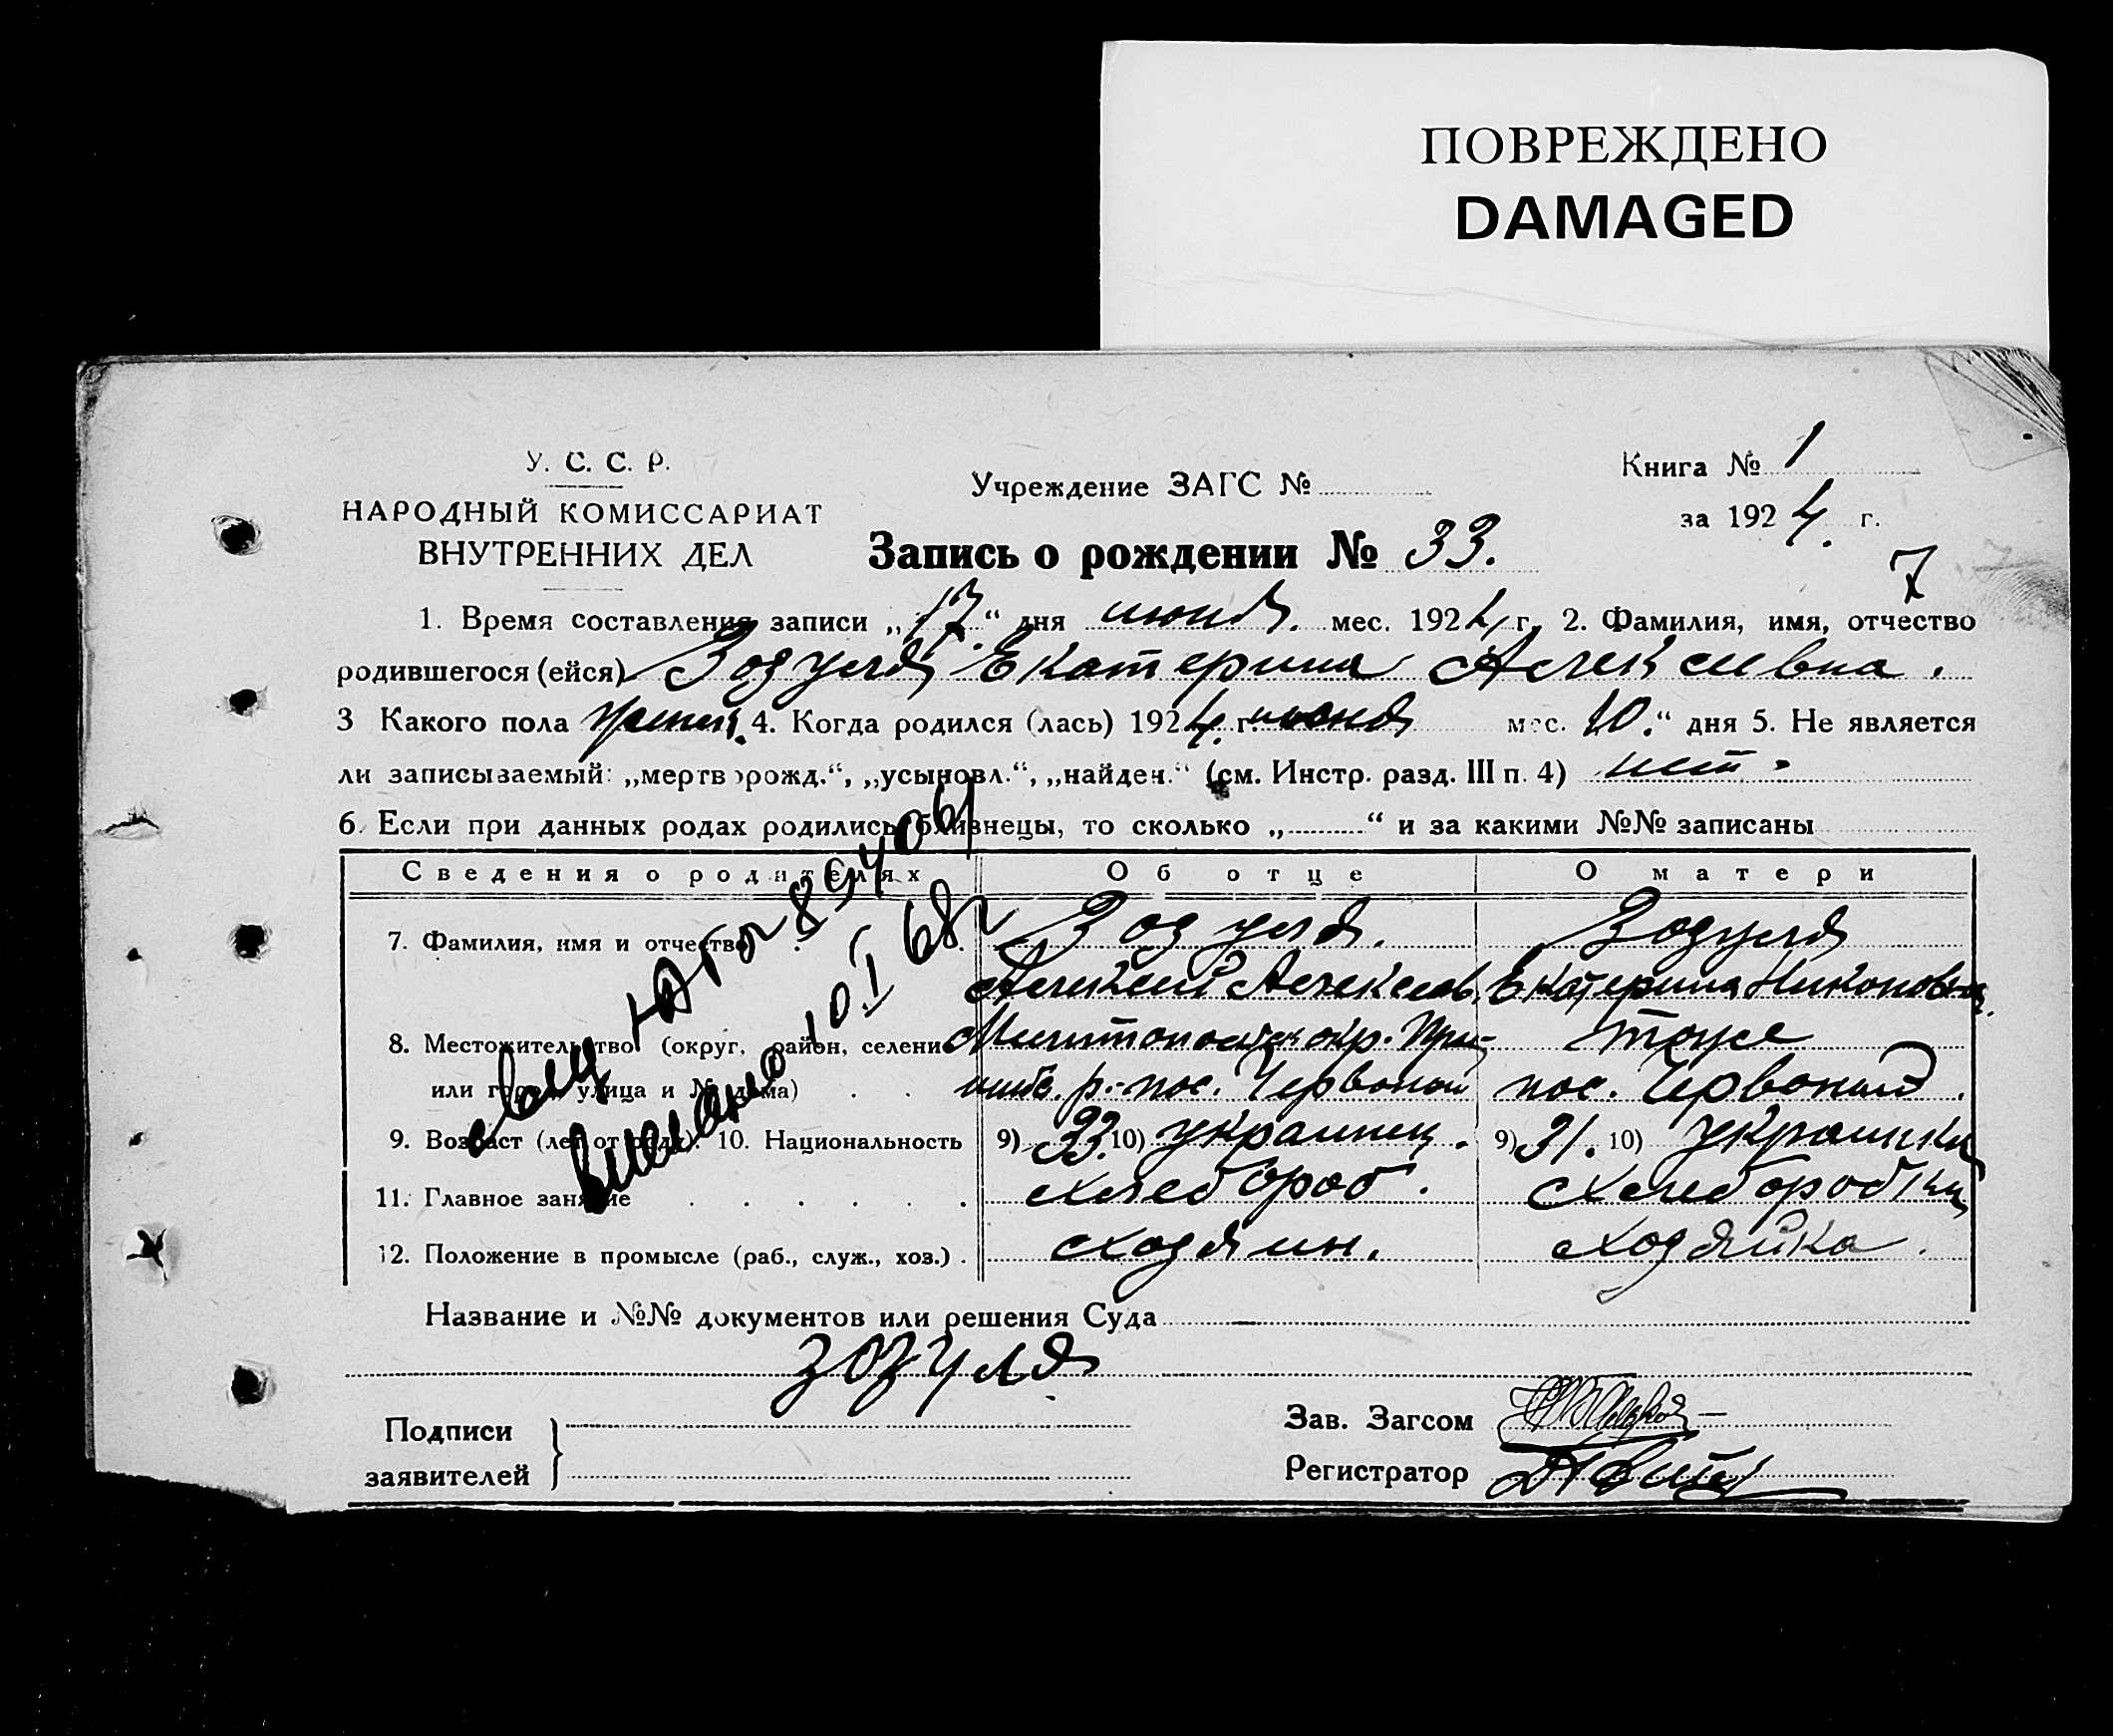 ПОВРЕЖДЕНО
DAMAGED
У. С. С. Р.
НАРОДНЫЙ КОМИССАРИАТ
ВНУТРЕННИХ ДЕЛ
Учреждение ЗАГС №
Книга № 1
за 1924 г.
Запись о рождении № 33.
7
1. Время составления записи „17.“ дня июня. мес. 1924 г. 2. Фамилия, имя, отчество
родившегося (ейся) Зозуля Екатерина Алексеевна.
3 Какого пола 4. Когда родился (лась) 1924. г. июня мес. 10.“ дня 5. Не является
ли записываемый: „мертворожд.“, „усыновл.“, „найден.“ (см. Инстр. разд. III п. 4) нет.
6. Если при данных родах родились близнецы, то сколько „ “ и за какими №№ записаны
Сведения о родителях Об отце О матери
7. Фамилия, имя и отчество Зозуля. Зозуля
Алексей Алексеев. Екатерина Никоновна.
8. Местожительство (округ, район, селение окр. тоже
или город, улица и № дома) р. пос. Червоный пос. Червоный.
9. Возраст (лет от роду). 10. Национальность 9) 33. 10) украинец. 9) 31. 10) украинка
11. Главное занятие хлебороб. хлеборобка
12. Положение в промысле (раб., служ., хоз.) . хозяин. хозяйка.
выдано 10 I 68г
Название и №№ документов или решения Суда
зозуля
Подписи
заявителей
Зав. Загсом
Регистратор